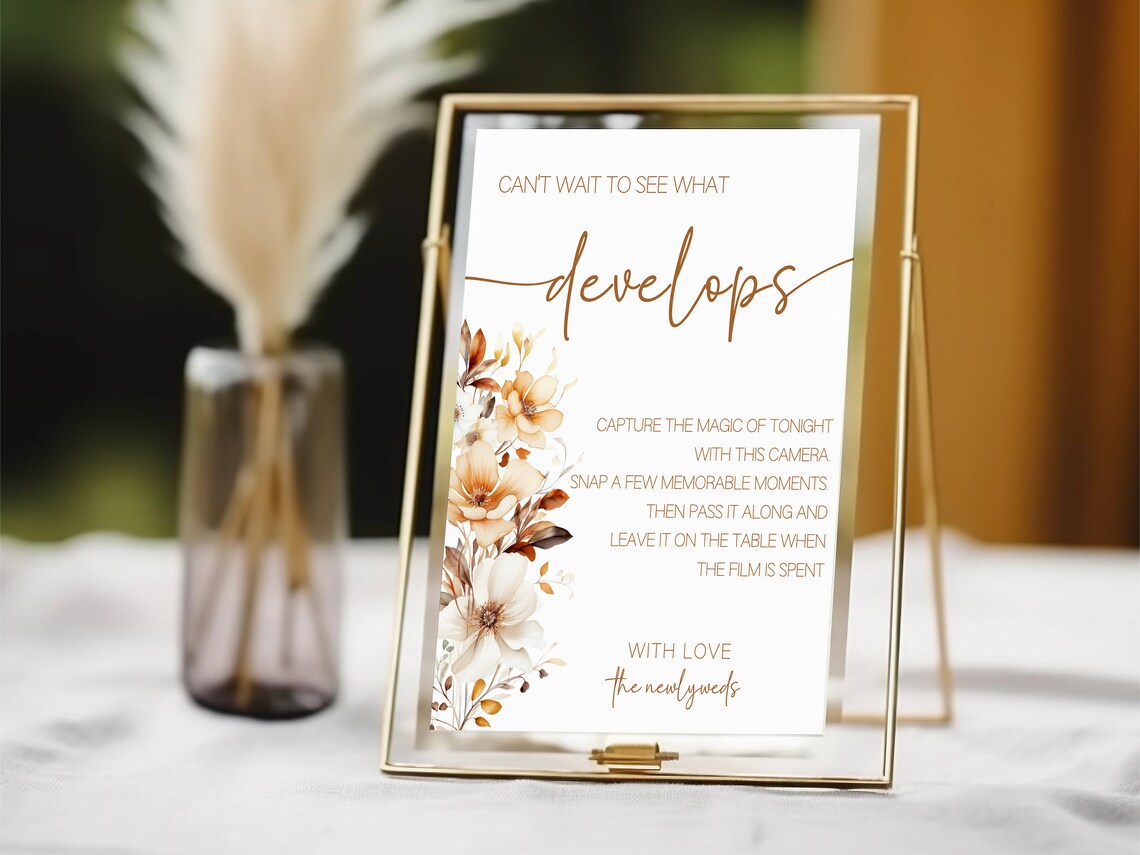 CAN'T WAIT TO SEE WHAT
develops
CAPTURE THE MAGIC OF TONIGHT
WITH THIS CAMERA.
SNAP A FEW MEMORABLE MOMENTS.
THEN PASS IT ALONG AND
LEAVE IT ON THE TABLE WHEN
THE FILM IS SPENT
WITH LOVE
the newlyweds